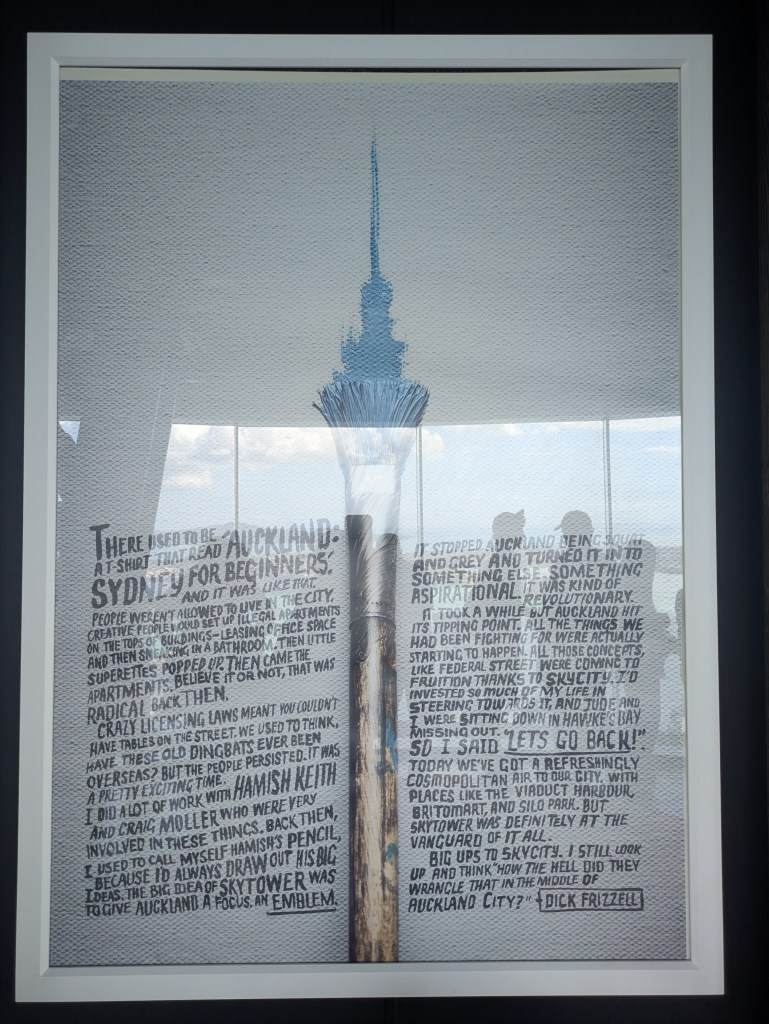 THERE USED TO BE 'AUCKLAND:
A T-SHIRT THAT READ
SYDNEY FOR BEGINNERS.'
AND IT WAS LIKE THAT.
PEOPLE WEREN'T ALLOWED TO LIVE IN THE CITY.
CREATIVE PEOPLE WOULD SET UP ILLEGAL APARTMENTS
ON THE TOPS OF BUILDINGS-LEASING OFFICE SPACE
AND THEN SNEAKING IN A BATHROOM. THEN LITTLE
SUPERETTES POPPED UP. THEN CAME THE
APARTMENTS. BELIEVE IT OR NOT, THAT WAS
RADICAL BACK THEN.
CRAZY LICENSING LAWS MEANT YOU COULDN'T
HAVE TABLES ON THE STREET. WE USED TO THINK,
HAVE THESE OLD DINGBATS EVER BEEN
OVERSEAS? BUT THE PEOPLE PERSISTED. IT WAS
A PRETTY EXCITING TIME.
I DID A LOT OF WORK WITH HAMISH KEITH
AND CRAIG MOLLER WHO WERE VERY
INVOLVED IN THESE THINGS. BACK THEN,
I USED TO CALL MYSELF HAMISH'S PENCIL,
BECAUSE I'D ALWAYS DRAW OUT HIS BIG
IDEAS. THE BIG IDEA OF SKYTOWER WAS
TO GIVE AUCKLAND A FOCUS. AN EMBLEM.
IT STOPPED AUCKLAND BEING SQUAT
AND GREY AND TURNED IT INTO
SOMETHING ELSE. SOMETHING
ASPIRATIONAL. IT WAS KIND OF
REVOLUTIONARY.
IT TOOK A WHILE BUT AUCKLAND HIT
ITS TIPPING POINT. ALL THE THINGS WE
HAD BEEN FIGHTING FOR WERE ACTUALLY
STARTING TO HAPPEN. ALL THOSE CONCEPTS,
LIKE FEDERAL STREET WERE COMING TO
FRUITION THANKS TO SKYCITY. I'D
INVESTED SO MUCH OF MY LIFE IN
STEERING TOWARDS IT, AND JUDE AND
I WERE SITTING DOWN IN HAWKE'S BAY
MISSING OUT.
SO I SAID "LETS GO BACK!".
TODAY WE'VE GOT A REFRESHINGLY
COSMOPOLITAN AIR TO OUR CITY, WITH
PLACES LIKE THE VIADUCT HARBOUR,
BRITOMART, AND SILO PARK. BUT
SKYTOWER WAS DEFINITELY AT THE
VANGUARD OF IT ALL.
BIG UPS TO SKYCITY. I STILL LOOK
UP AND THINK "HOW THE HELL DID THEY
WRANGLE THAT IN THE MIDDLE OF
AUCKLAND CITY?" - DICK FRIZZELL